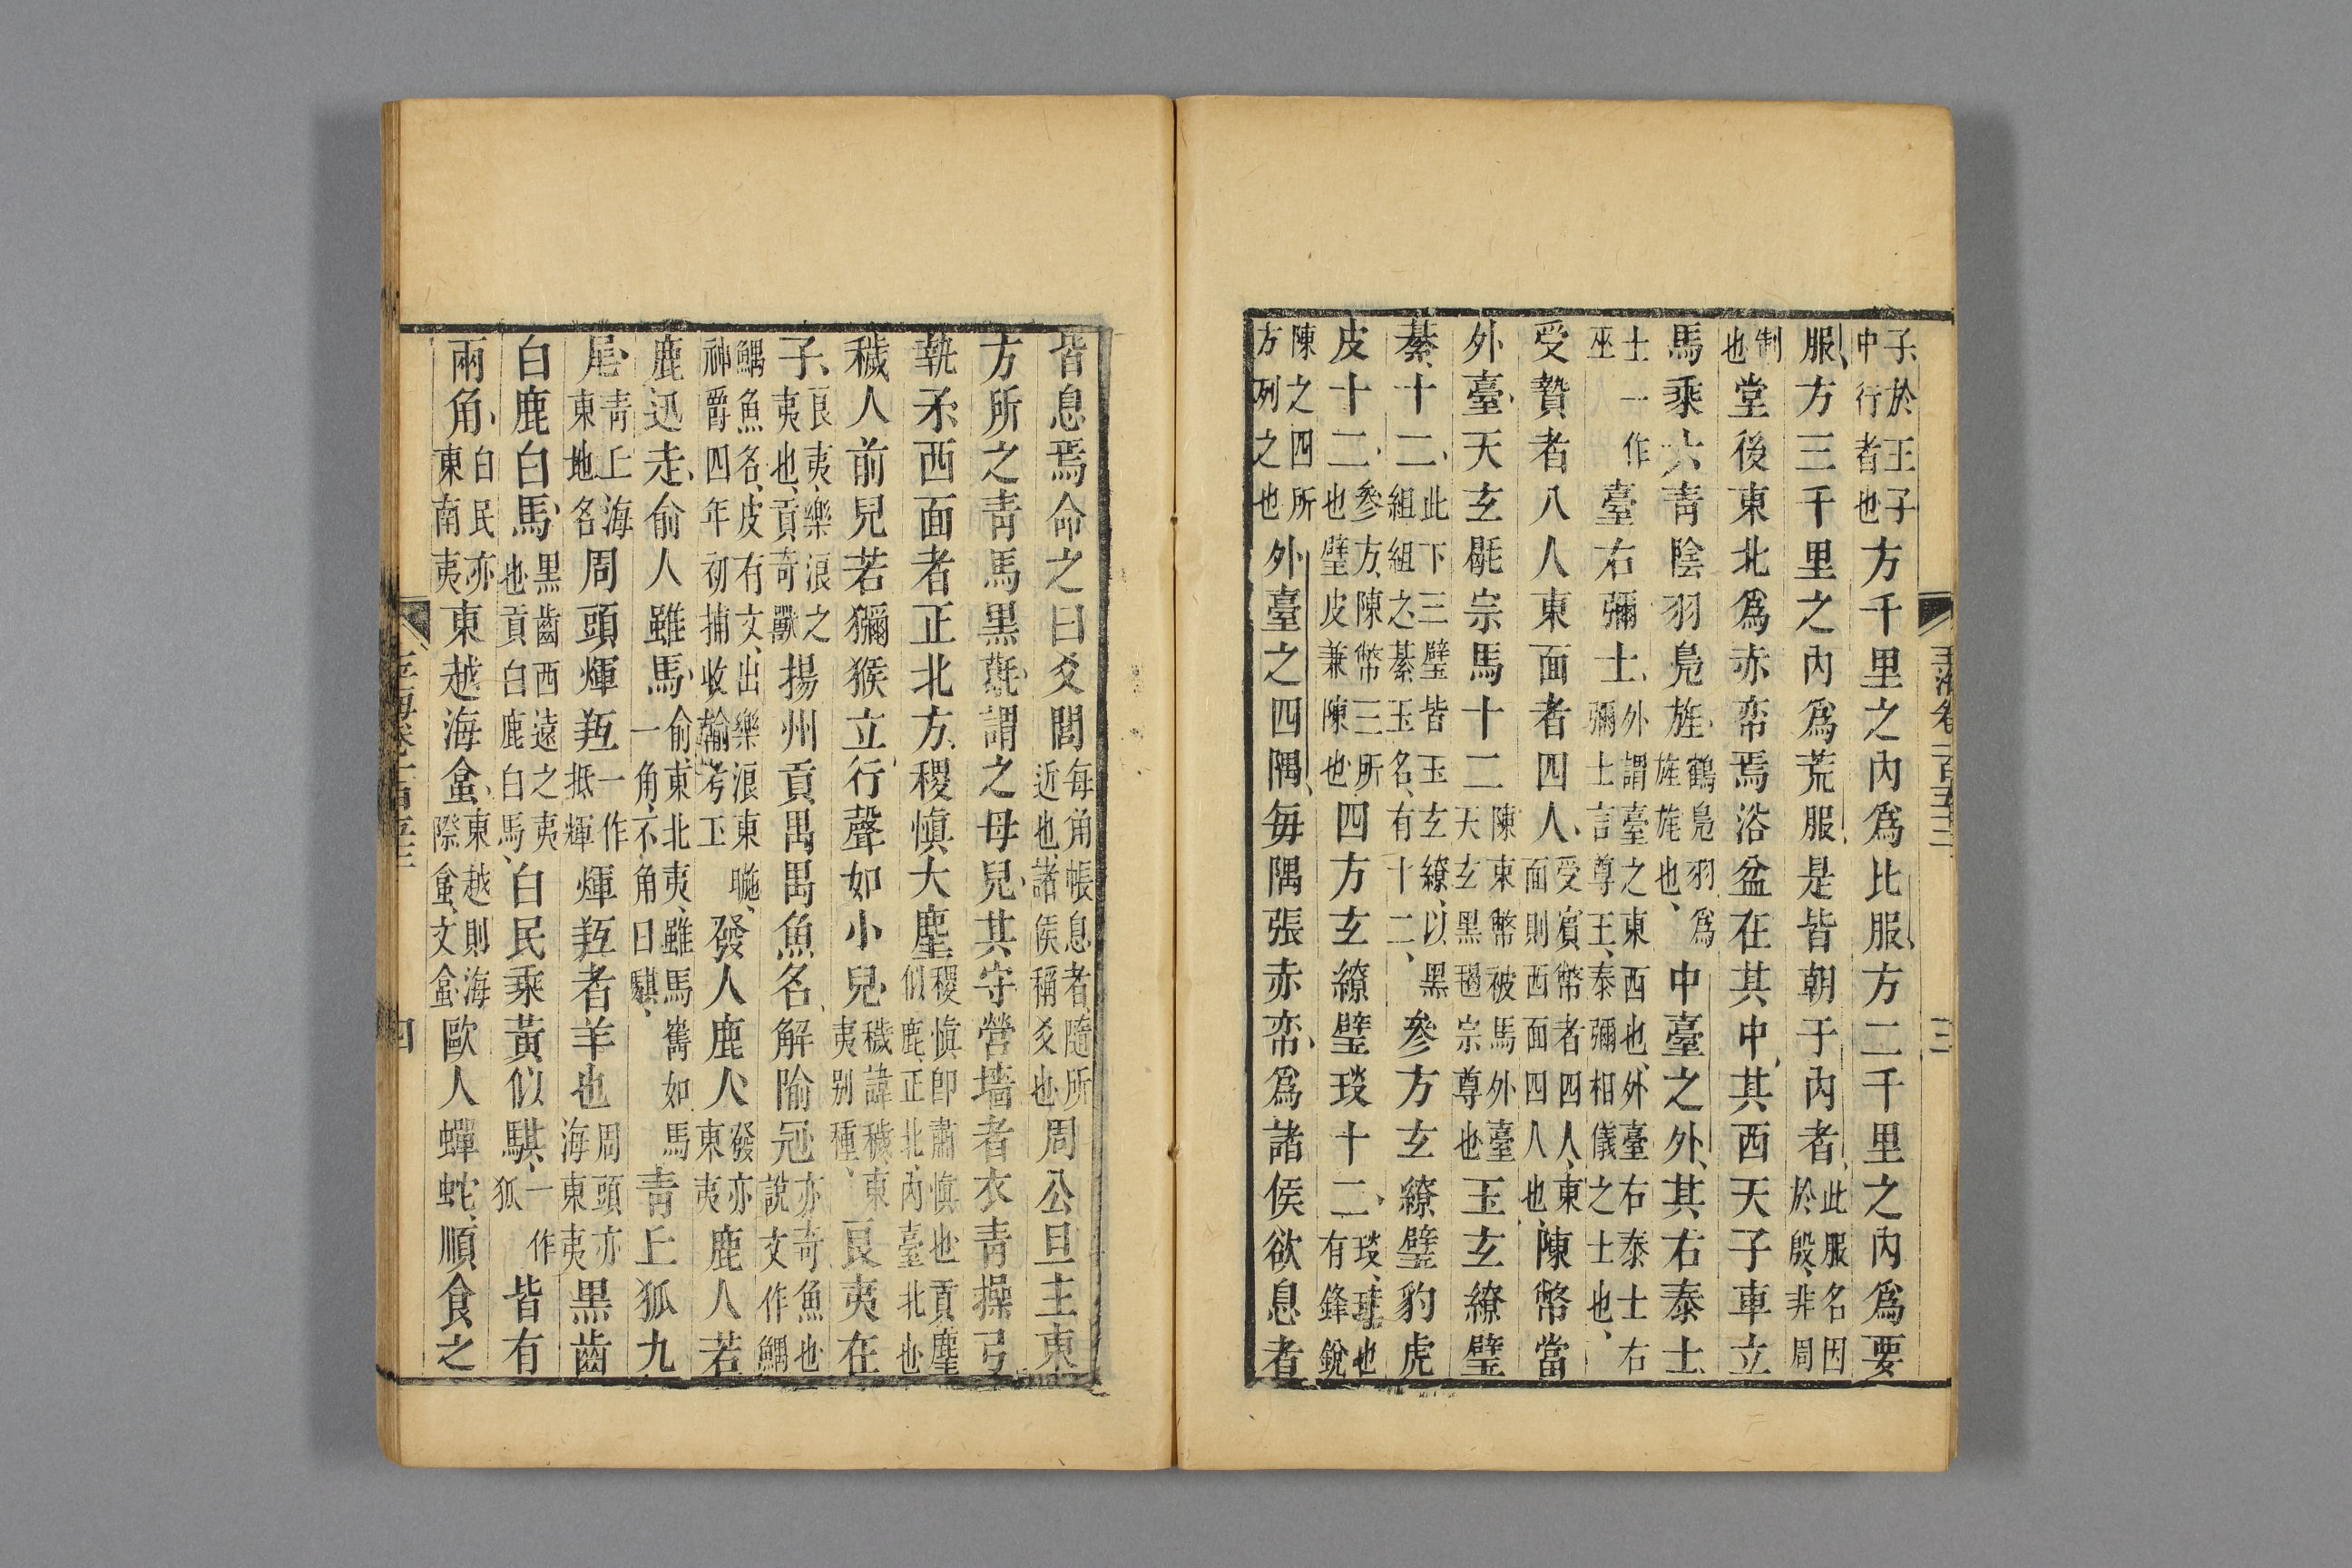 玉海卷一百五十二 三
子於王子中行者也方千里之內爲比服方二千里之內爲要
服方三千里之內爲荒服是皆朝于內者此服名因於殷非周
制也堂後東北爲赤帟焉浴盆在其中其西天子車立
馬乘六青陰羽鳧旌鶴鳧羽爲旌旄也中臺之外其右泰士
士一作巫臺右彌士外謂臺之東西也外臺右泰士右彌士言尊王泰彌相儀之士也
受贄者八人東面者四人受賓幣者四人東面則西面四人也陳幣當
外臺天玄毼宗馬十二陳東幣被馬外臺天玄黑毼宗尊也玉玄繚璧
綦十二此下三璧皆玉玄繚以黑組組之綦玉名有十二參方玄繚璧豹虎
皮十二參方陳幣三所也璧皮兼陳也四方玄繚璧琰十二琰珪也有鋒銳
陳之四所方列之也外臺之四隅每隅張赤帟爲諸侯欲息者
皆息焉命之曰爻閭每角帳息者隨所近也諸侯稱爻也周公旦主東
方所之青馬黑毼謂之母兒其守營墻者衣青操弓
執矛西面者正北方稷愼大麈稷愼卽肅愼也貢麈似鹿正北內臺北也
穢人前兒若獼猴立行聲如小兒穢諱穢東夷別種良夷在
子良夷樂浪之夷也貢奇獸揚州貢禺禺魚名解隃冠亦奇魚也說文作鰅
鰅魚名皮有文出樂浪東暆神爵四年初捕收輸考工發人鹿人發亦東夷鹿人若
鹿迅走俞人雖馬俞東北夷雖馬嶲如馬一角不角曰騏青丘狐九
尾青丘海東地名周頭煇羝一作抵輝煇羝者羊也周頭亦海東夷黑齒
白鹿白馬黑齒西遠之夷也貢白鹿白馬白民乘黃似騏一作狐皆有
兩角白民亦東南夷東越海蛤東越則海際蛤文蛤歐人蟬蛇順食之
四